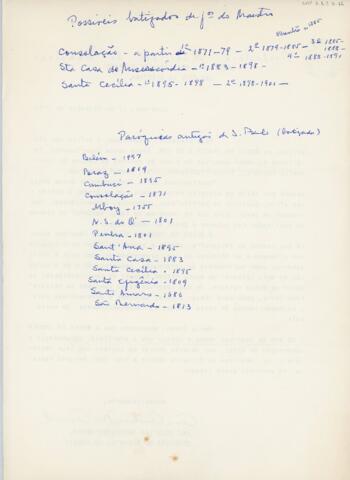 Possiveis batizados de Jº do Mastro
Consolação - a partir de 1º 1871-79 - 2º 1879-1885 - 3º 1885-1888 -
4º 1888-1891
Sta Casa de Misericórdia - 1º 1883-1898 -
Santa Cecília - 1º 1895-1898 - 2º 1898-1901 -
Paróquias antigas de S. Paulo (batizados)
Belém - 1897
Braz - 1819
Cambuci - 1895
Consolação - 1871
Mboy - 1755
N. S. do Ó - 1801
Penha - 1801
Sant'Ana - 1895
Santa Casa - 1883
Santa Cecília - 1895
Santa Efigênia - 1809
Santo Amaro - 1686
São Bernardo - 1813